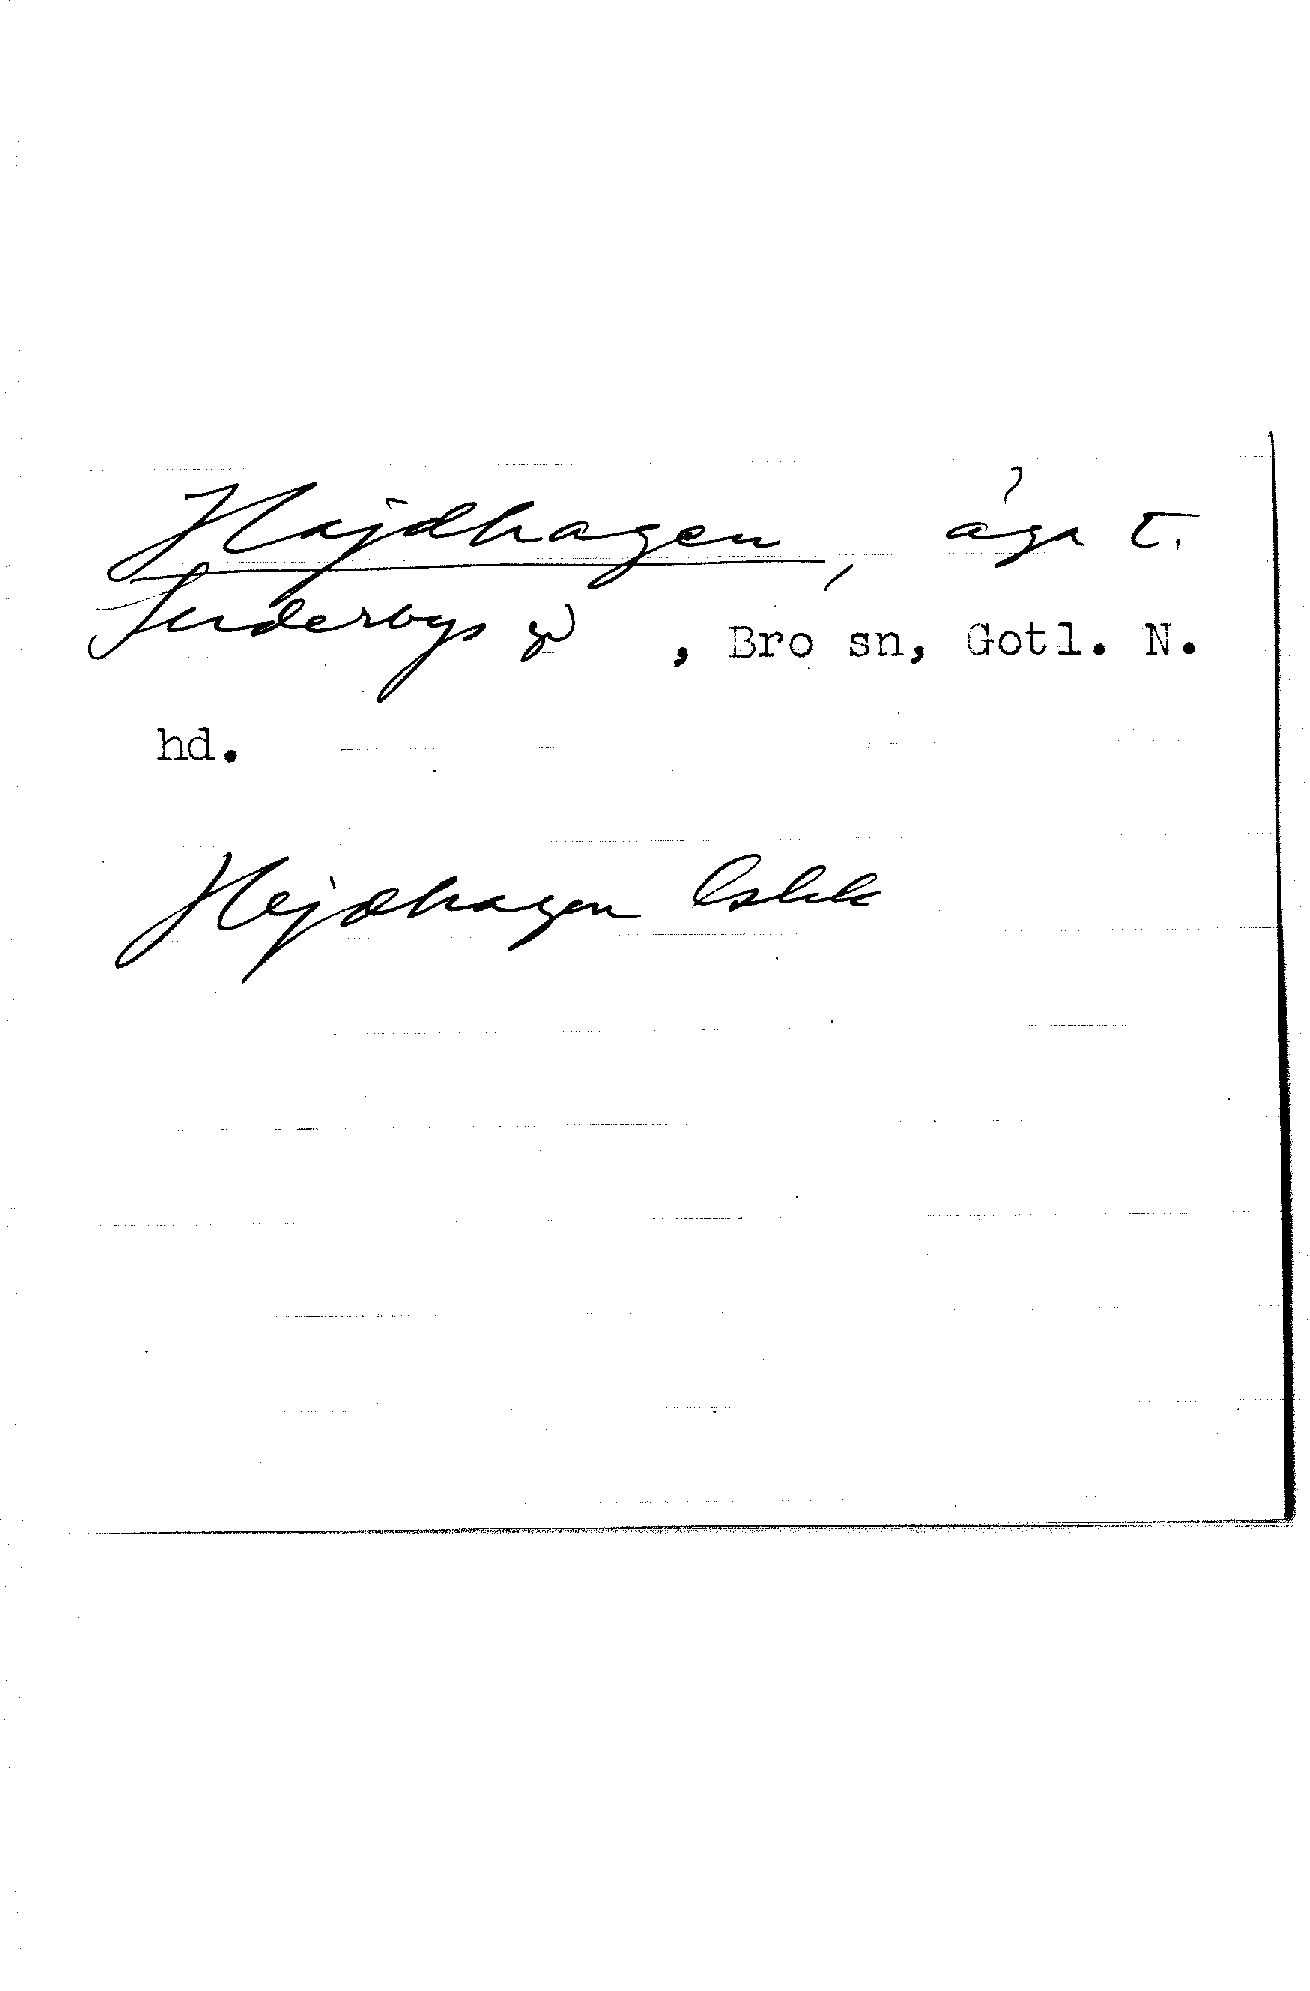 Hajdhagen, äga t.
Suderbys gd, Bro sn, Gotl. N.
hd.
Hejdhagen